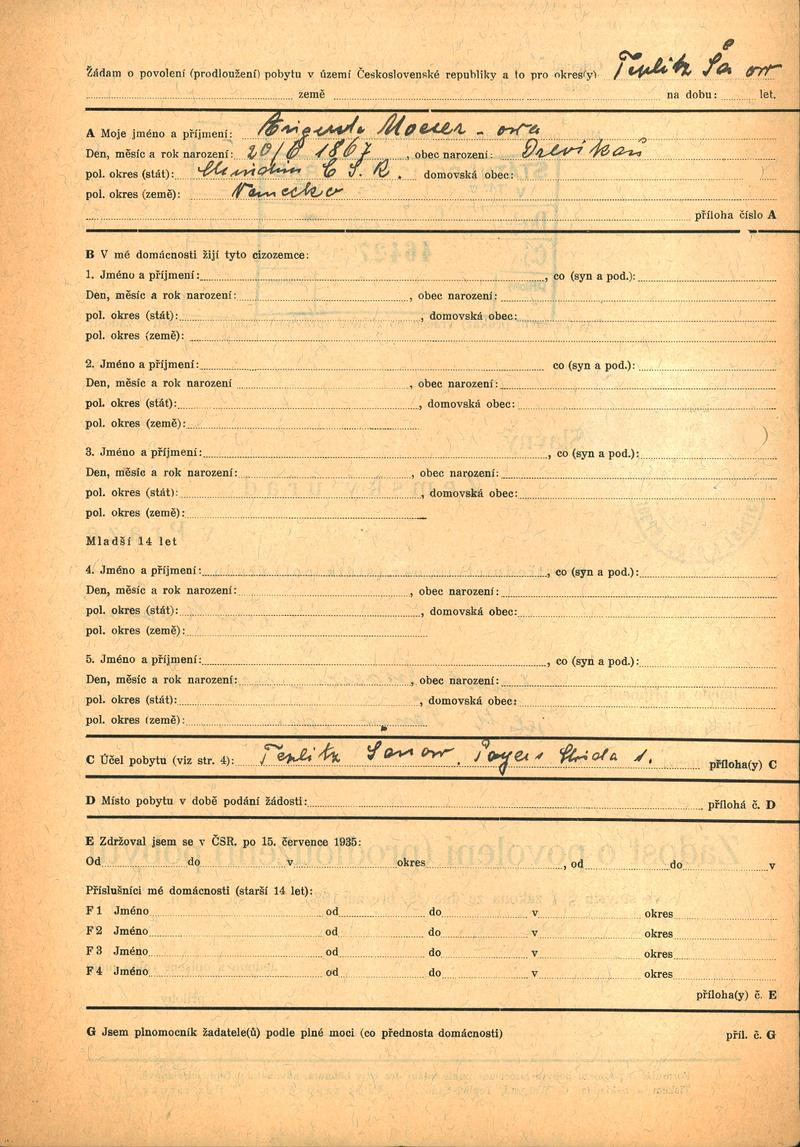 Žádam o povolení (prodloužení) pobytu v území Československé republiky a to pro okres(y) Teplitz Šanow
země na dobu: let.
A Moje jméno a příjmení: Moeser - ova
Den, měsíc a rok narození: 20/6 1867, obec narození:
pol. okres (stát): Č S. R. domovská obec:
pol. okres (země): Německo
příloha číslo A
B V mé domácnosti žijí tyto cizozemce:
1. Jméno a příjmení: , co (syn a pod.):
Den, měsíc a rok narození: , obec narození:
pol. okres (stát): , domovská obec:
pol. okres (země):
2. Jméno a příjmení: co (syn a pod.):
Den, měsíc a rok narození , obec narození:
pol. okres (stát): , domovská obec:
pol. okres (země):
3. Jméno a příjmení: , co (syn a pod.):
Den, měsíc a rok narození: , obec narození:
pol. okres (stát): , domovská obec:
pol. okres (země):
Mladší 14 let
4. Jméno a příjmení: , co (syn a pod.):
Den, měsíc a rok narození: , obec narození:
pol. okres (stát): , domovská obec:
pol. okres (země):
5. Jméno a příjmení: , co (syn a pod.):
Den, měsíc a rok narození: , obec narození:
pol. okres (stát): , domovská obec:
pol. okres (země):
C Účel pobytu (viz str. 4): Teplitz Sanow. příloha(y) C
D Místo pobytu v době podání žádosti: přílohá č. D
E Zdržoval jsem se v ČSR. po 15. července 1935:
Od do v okres , od do v
Příslušníci mé domácnosti (starší 14 let):
F 1 Jméno od do v okres
F 2 Jméno od do v okres
F 3 Jméno od do v okres
F 4 Jméno od do v okres
příloha(y) č. E
G Jsem plnomocník žadatele(ů) podle plné moci (co přednosta domácnosti) příl. č. G